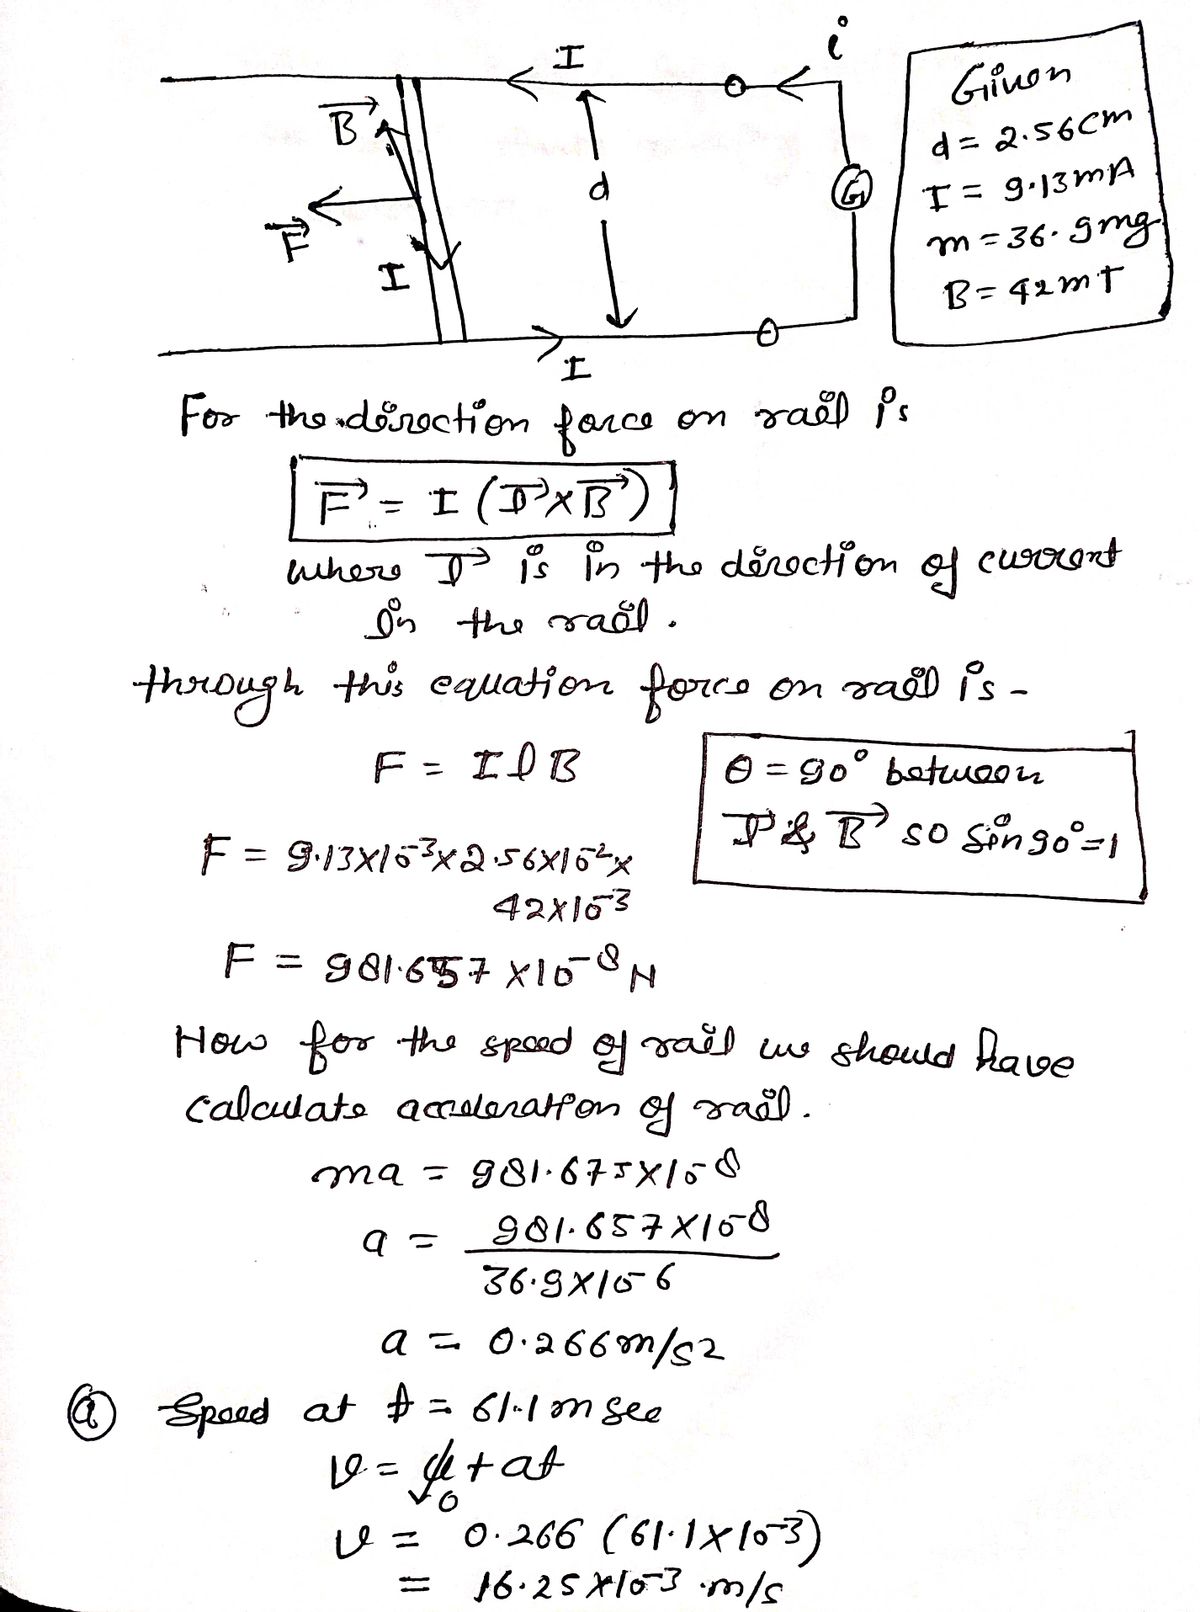 I
i
Given
d = 2.56cm
I = 9.13mA
m = 36.9mg
B = 42mT
B
d
G
F
I
I
For the direction force on rail is
F = I (l × B)
where l is in the direction of current
in the rail.
through this equation force on rail is -
F = I l B
θ = 90° between
l & B so sin90° = 1
F = 9.13×10-3×2.56×10-2×
42×10-3
F = 981.657 ×10-8 N
Now for the speed of rail we should have
calculate acceleration of rail.
ma = 981.675×10-8
a = 981.657×10-8
36.9×10-6
a = 0.266m/s2
(a) Speed at t = 61.1 m sec
v = u + at
0
v = 0.266 (61.1×10-3)
= 16.25×10-3 m/s